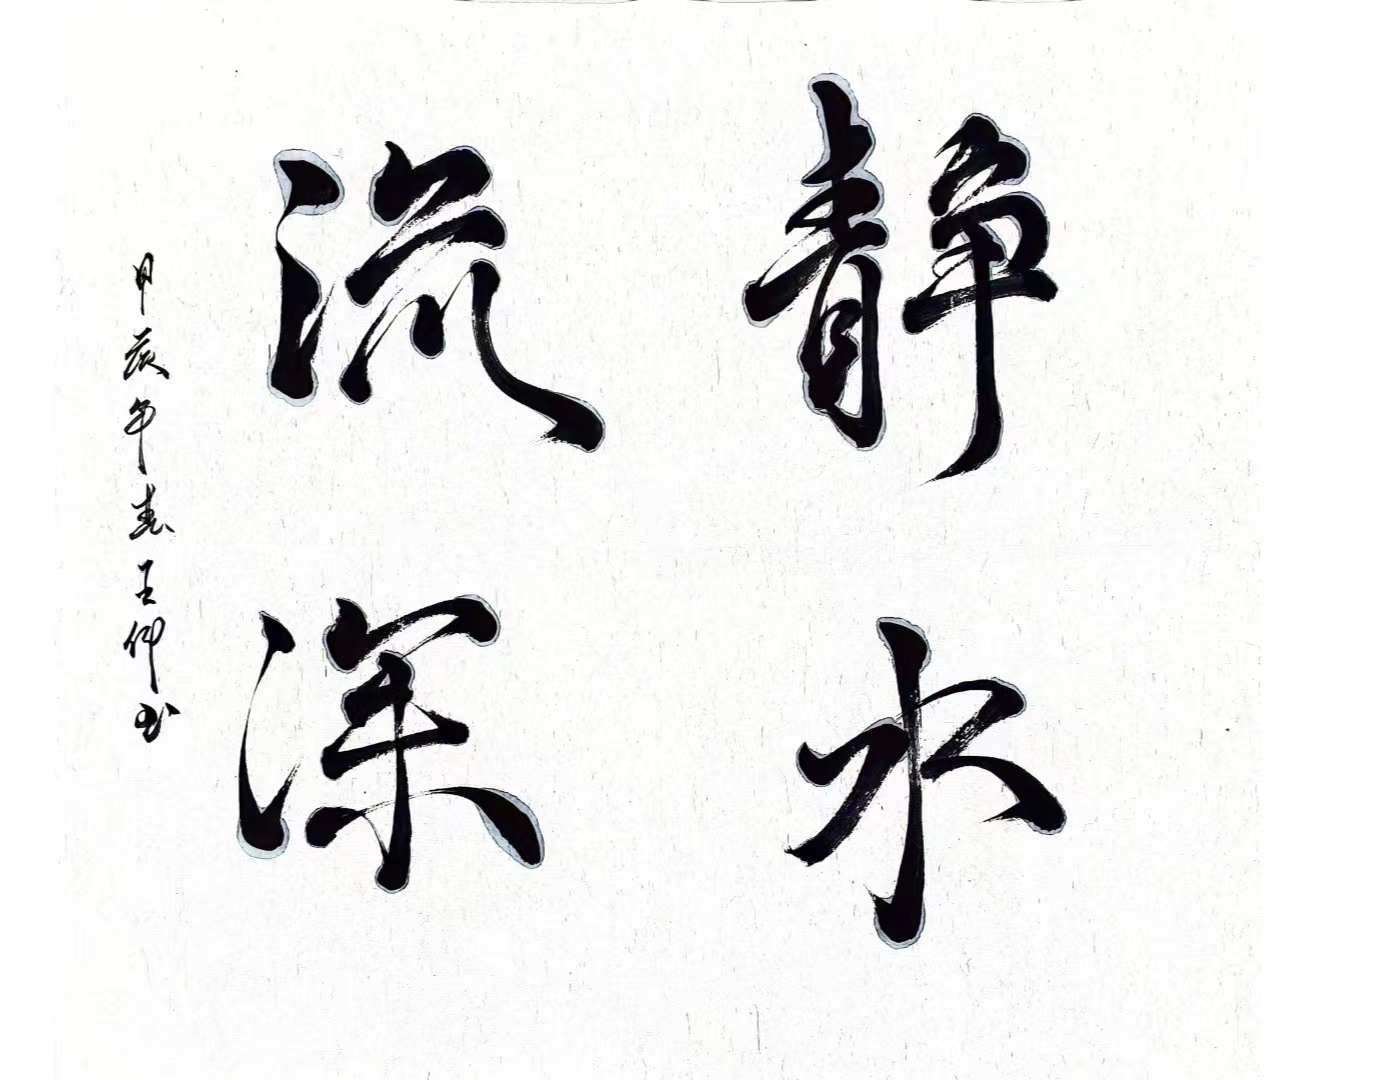 静水
流深
甲辰年春王仲书